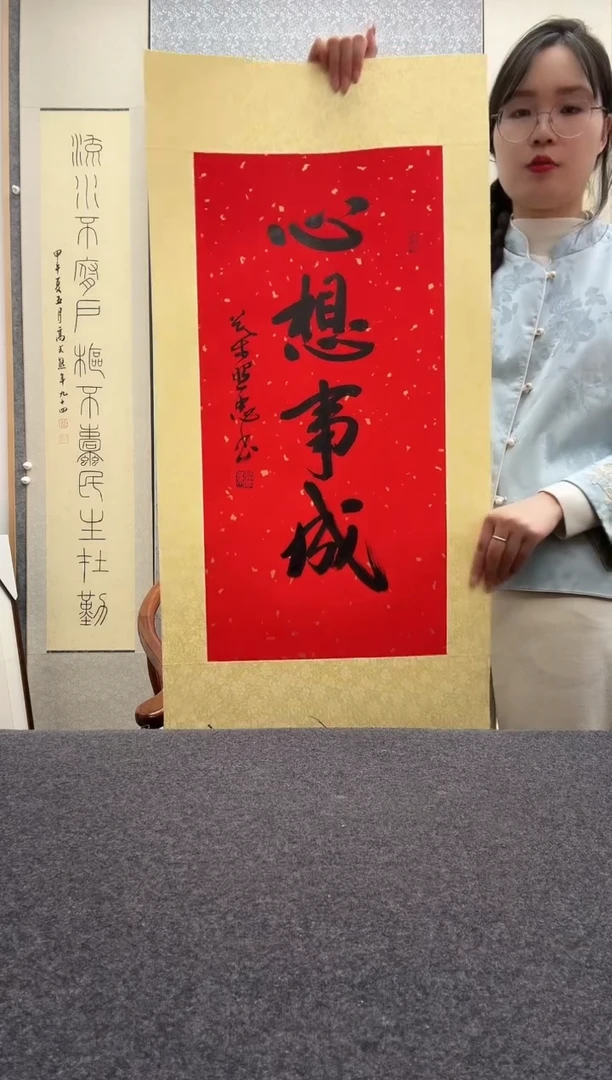 心想事成
流水不腐戶樞不蠹民生在勤
甲午夏五月高式熊年九十四